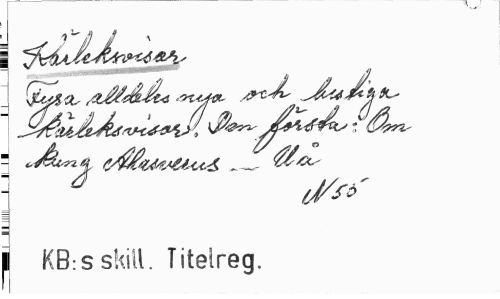 Kärleksvisor
Fyra alldeles nya och lustiga
kärleksvisor. Den första: Om
kung Ahasverus — Uå
N 55
KB:s skill. Titelreg.